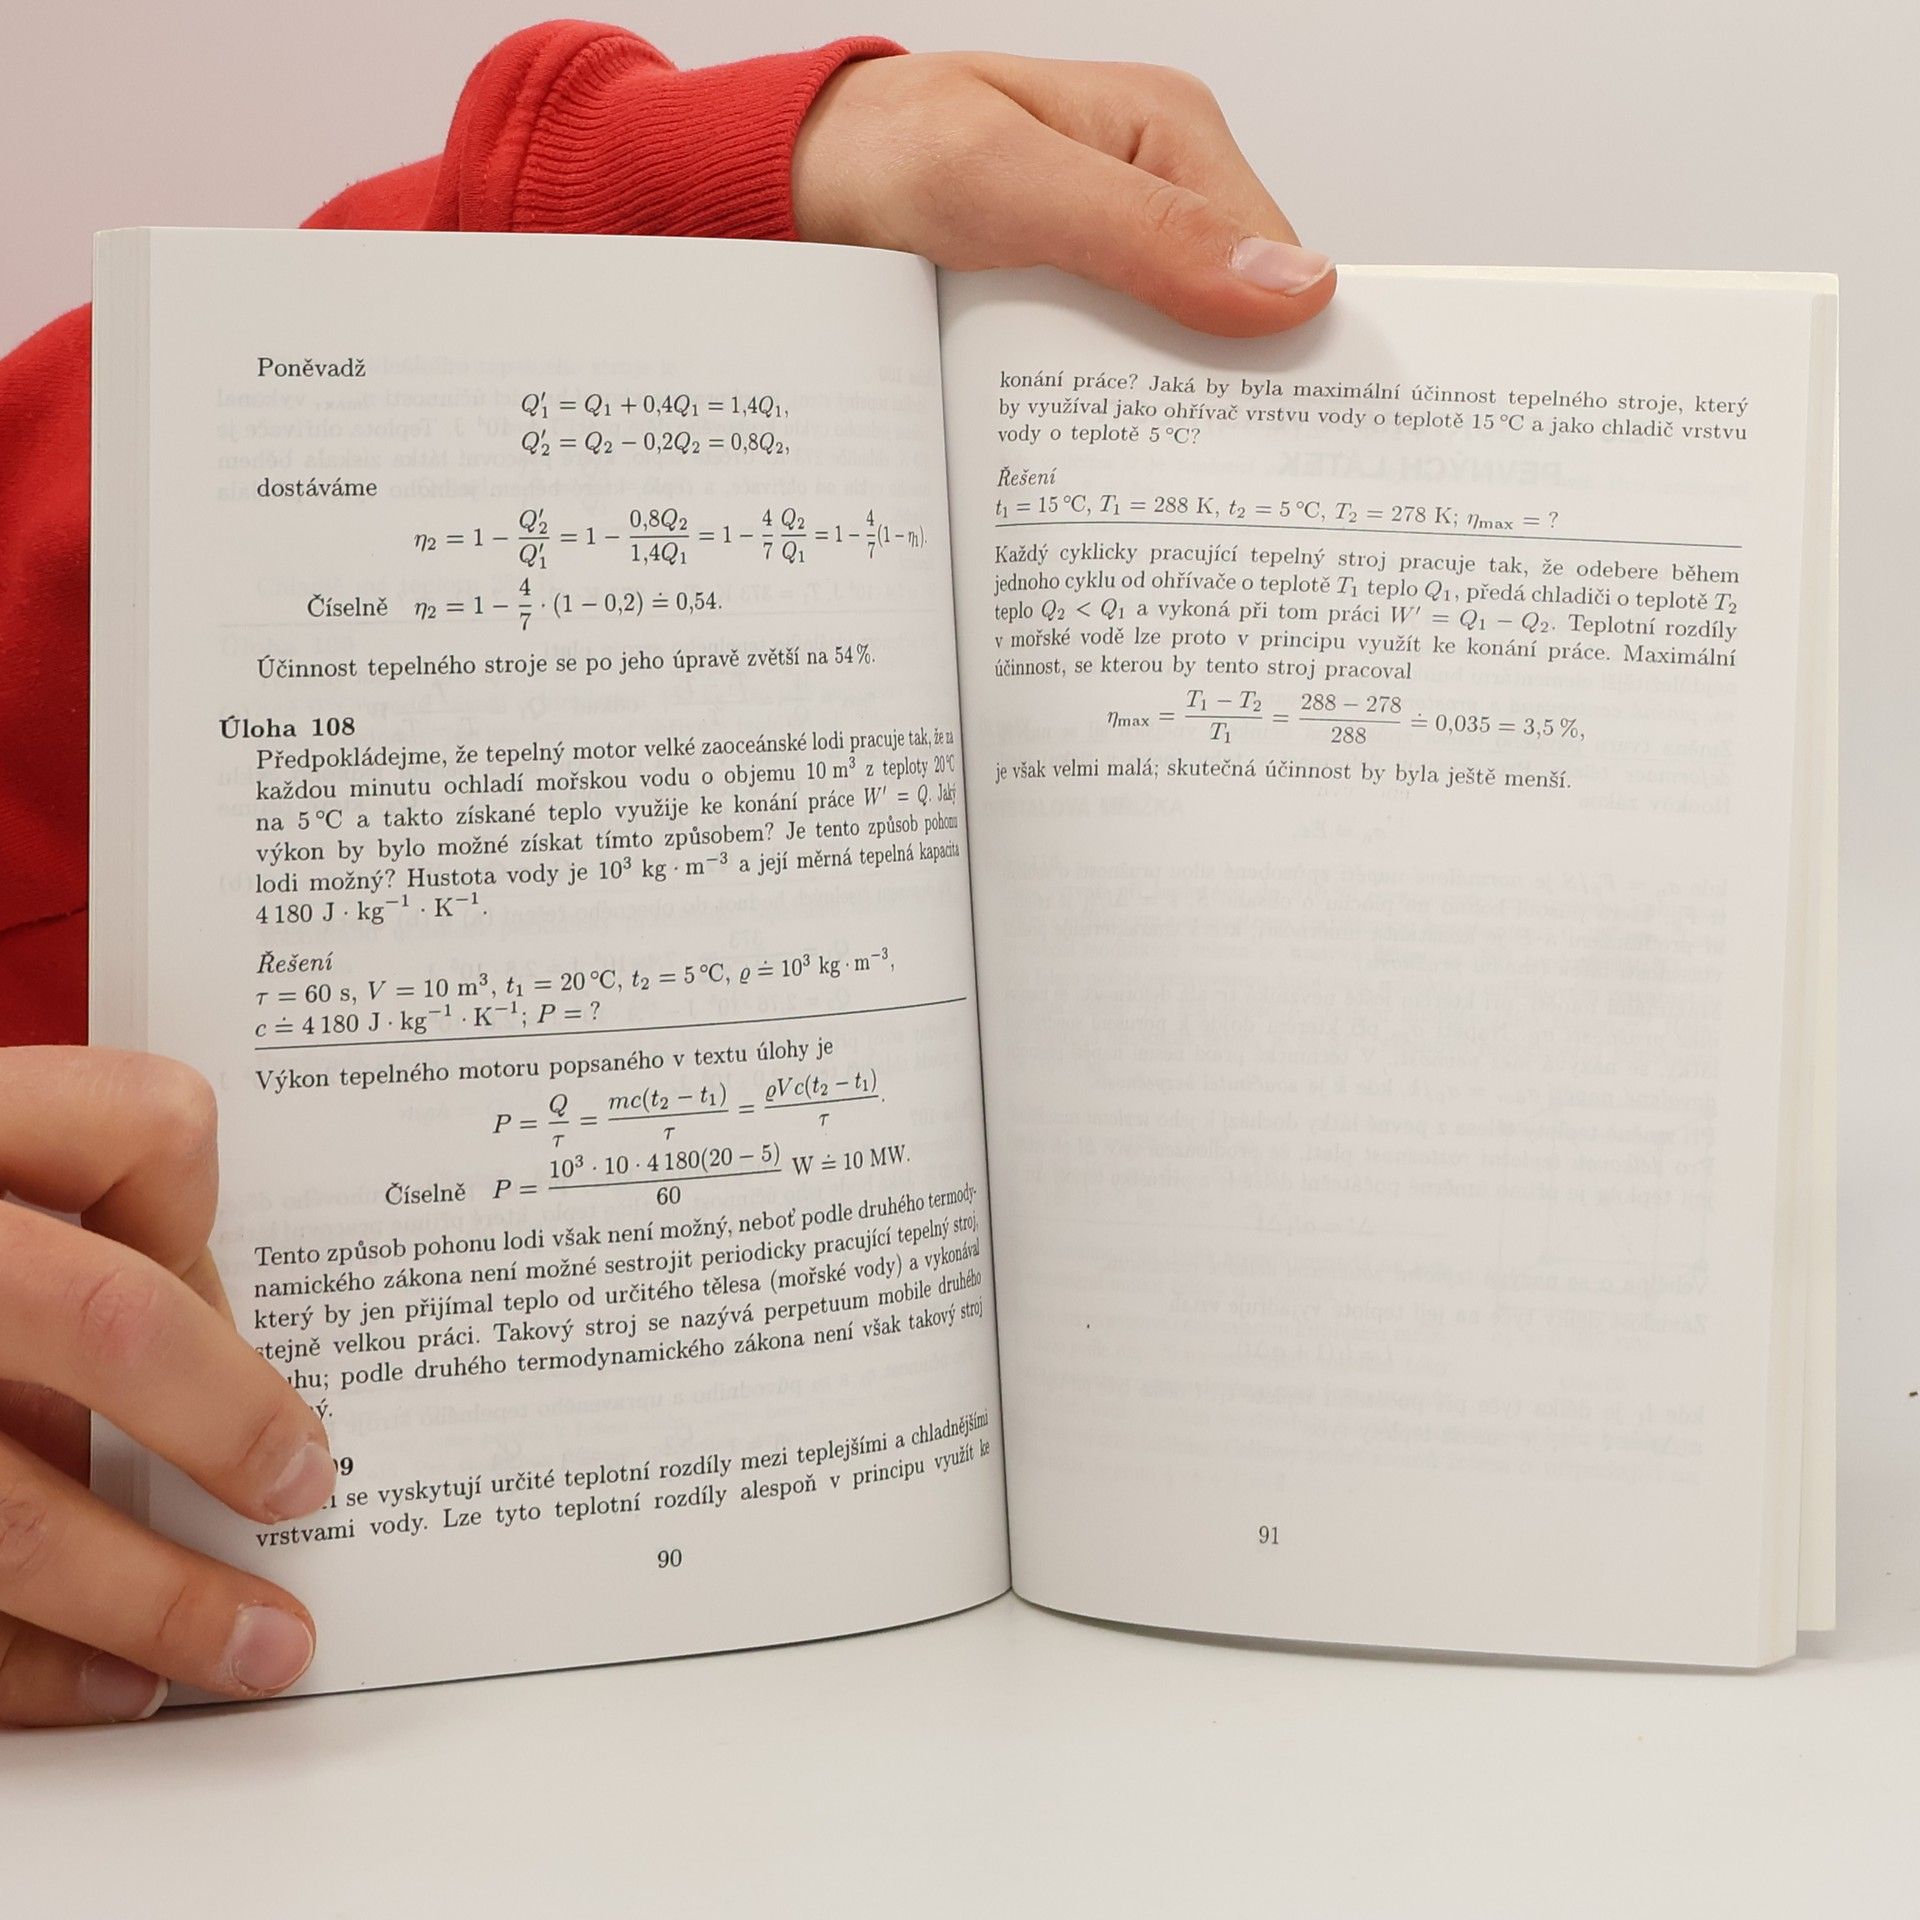 Poněvadž
Q′₁ = Q₁ + 0,4Q₁ = 1,4Q₁,
Q′₂ = Q₂ − 0,2Q₂ = 0,8Q₂,
dostáváme
η₂ = 1 − Q′₂/Q′₁ = 1 − 0,8Q₂/1,4Q₁ = 1 − 4/7 Q₂/Q₁ = 1 − 4/7(1 − η₁).
Číselně η₂ = 1 − 4/7 · (1 − 0,2) ≐ 0,54.
Účinnost tepelného stroje se po jeho úpravě zvětší na 54 %.
Úloha 108
Předpokládejme, že tepelný motor velké zaoceánské lodi pracuje tak, že za
každou minutu ochladí mořskou vodu o objemu 10 m³ z teploty 20 °C
na 5 °C a takto získané teplo využije ke konání práce W′ = Q. Jaký
výkon by bylo možné získat tímto způsobem? Je tento způsob pohonu
lodi možný? Hustota vody je 10³ kg · m⁻³ a její měrná tepelná kapacita
4 180 J · kg⁻¹ · K⁻¹.
Řešení
τ = 60 s, V = 10 m³, t₁ = 20 °C, t₂ = 5 °C, ϱ ≐ 10³ kg · m⁻³,
c ≐ 4 180 J · kg⁻¹ · K⁻¹; P = ?
Výkon tepelného motoru popsaného v textu úlohy je
P = Q/τ = mc(t₂ − t₁)/τ = ϱVc(t₂ − t₁)/τ.
Číselně P = 10³ · 10 · 4 180(20 − 5)/60 W ≐ 10 MW.
Tento způsob pohonu lodi však není možný, neboť podle druhého termody-
namického zákona není možné sestrojit periodicky pracující tepelný stroj,
který by jen přijímal teplo od určitého tělesa (mořské vody) a vykonával
stejně velkou práci. Takový stroj se nazývá perpetuum mobile druhého
uhu; podle druhého termodynamického zákona není však takový stroj
ý.
09
i se vyskytují určité teplotní rozdíly mezi teplejšími a chladnějšími
vrstvami vody. Lze tyto teplotní rozdíly alespoň v principu využít ke
90
konání práce? Jaká by byla maximální účinnost tepelného stroje, který
by využíval jako ohřívač vrstvu vody o teplotě 15 °C a jako chladič vrstvu
vody o teplotě 5 °C?
Řešení
t₁ = 15 °C, T₁ = 288 K, t₂ = 5 °C, T₂ = 278 K; ηmax = ?
Každý cyklicky pracující tepelný stroj pracuje tak, že odebere během
jednoho cyklu od ohřívače o teplotě T₁ teplo Q₁, předá chladiči o teplotě T₂
teplo Q₂ < Q₁ a vykoná při tom práci W′ = Q₁ − Q₂. Teplotní rozdíly
v mořské vodě lze proto v principu využít ke konání práce. Maximální
účinnost, se kterou by tento stroj pracoval
ηmax = T₁ − T₂/T₁ = 288 − 278/288 ≐ 0,035 = 3,5 %,
je však velmi malá; skutečná účinnost by byla ještě menší.
91